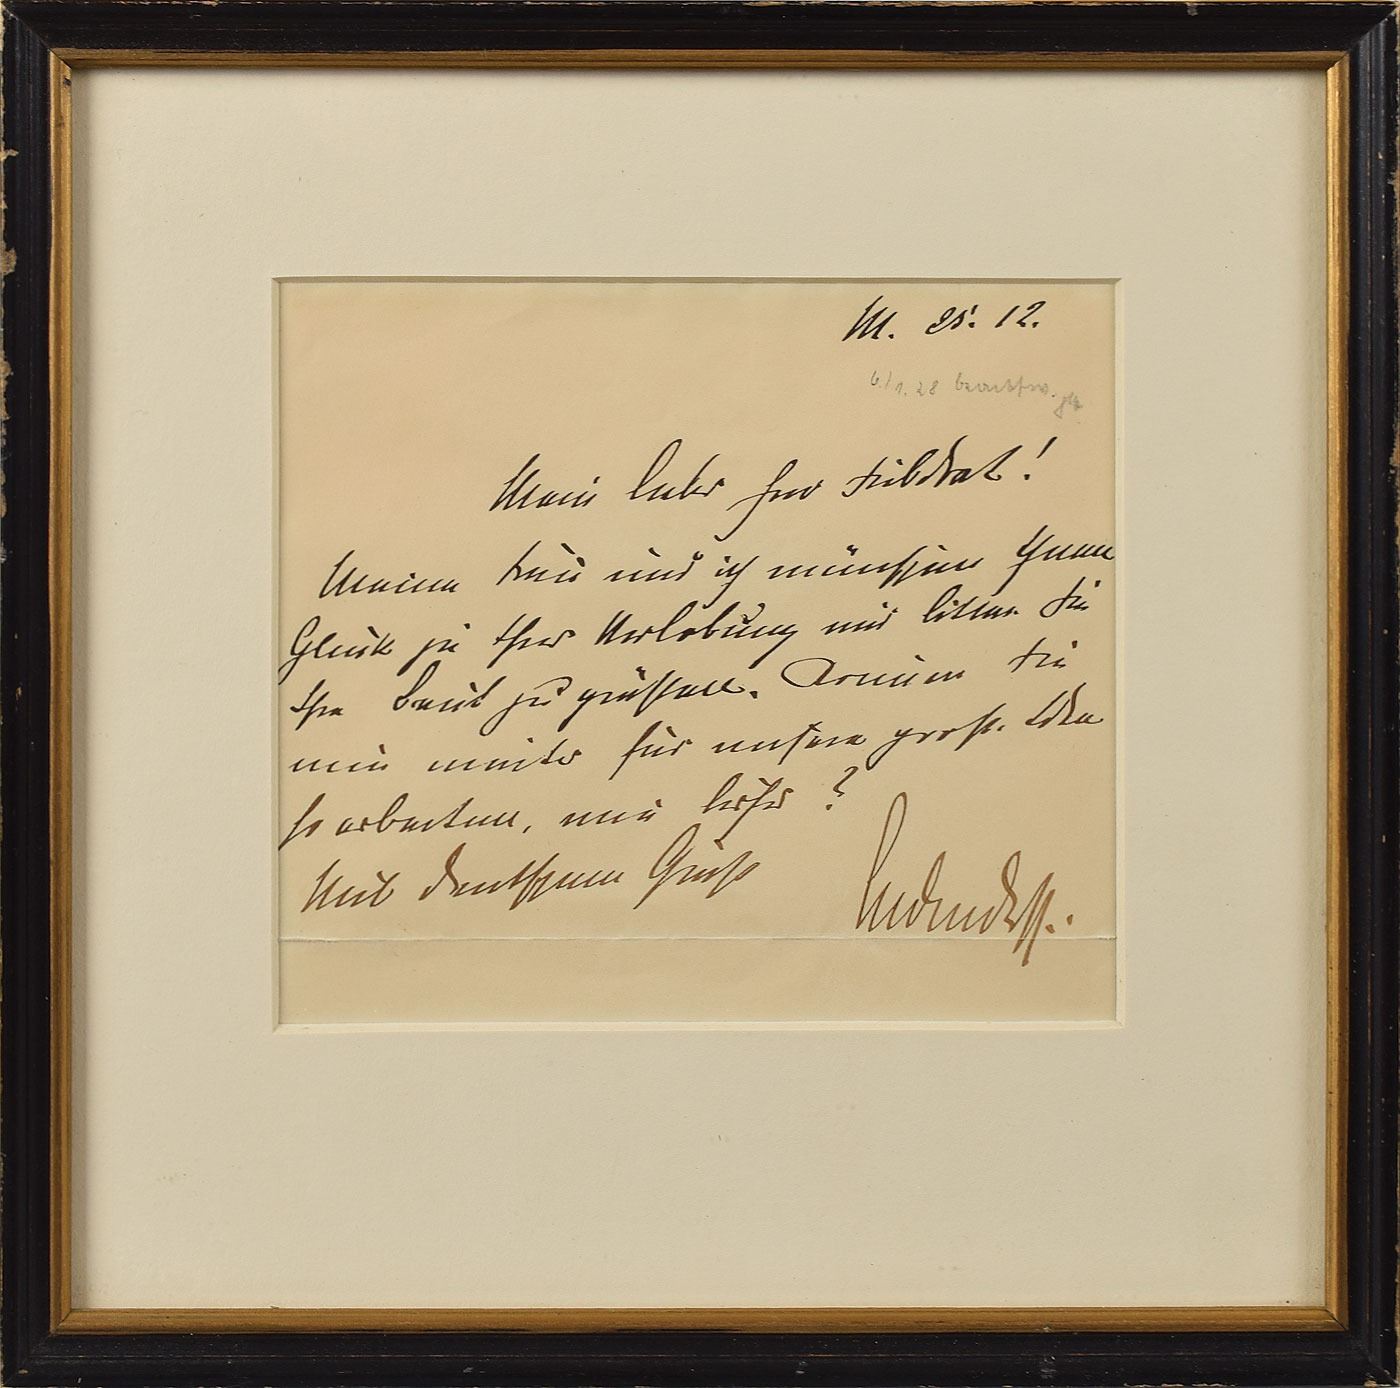 M. 25. 12.
6./1. 28 beantw.
Mein lieber Herr Siebdrat!
Meine Frau und ich wünschen Ihnen
Glück zu Ihrer Verlobung und bitten Sie
Ihre Braut zu grüßen. Können Sie
nun weiter für unsere große Idee
so arbeiten, wie bisher?
Mit deutschem Gruß Ludendorff.